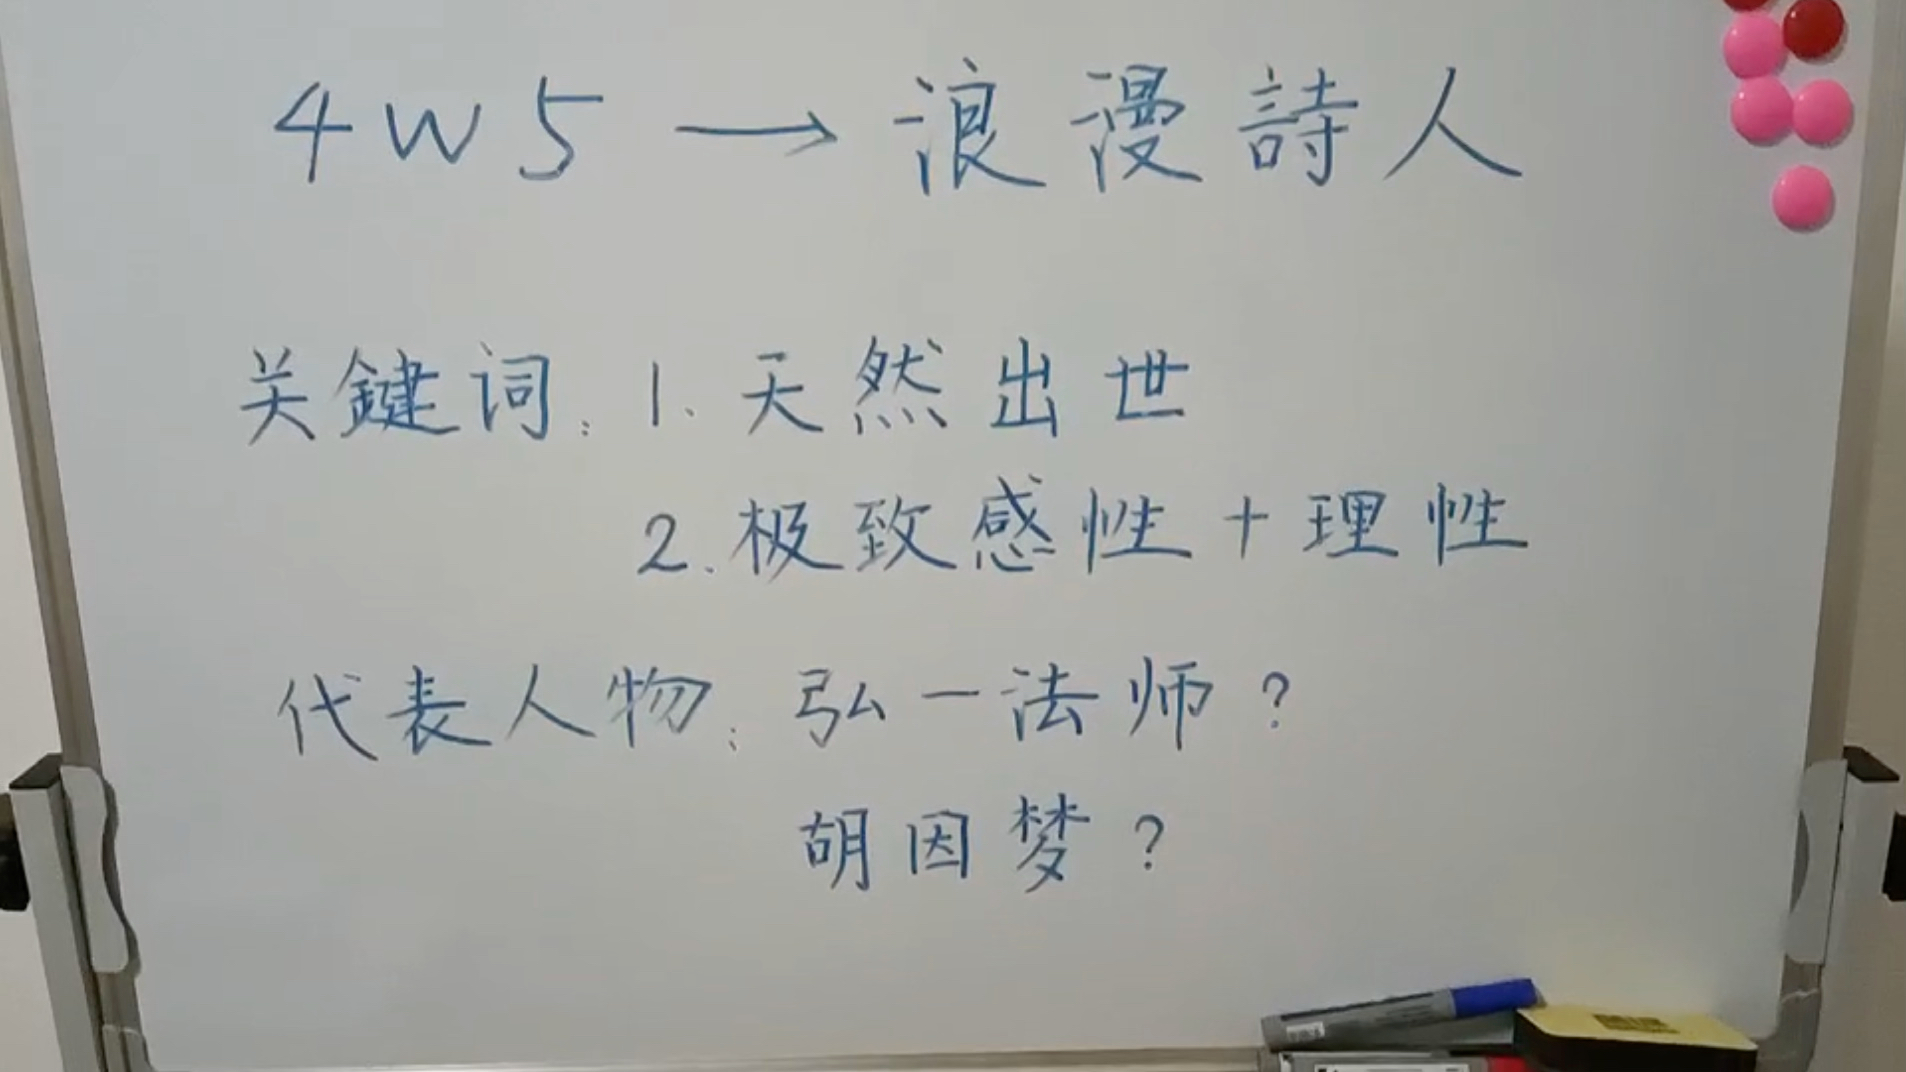 4w5→浪漫詩人
关鍵词:1.天然出世
2.极致感性+理性
代表人物:弘一法师?
胡因梦?